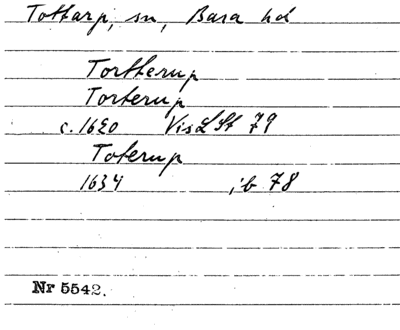 Tottarp, sn, Bara hd
Tortterup
Torterup
c. 1620 VisLSt 79
Toterup
1634 ib 78
Nr 5542.